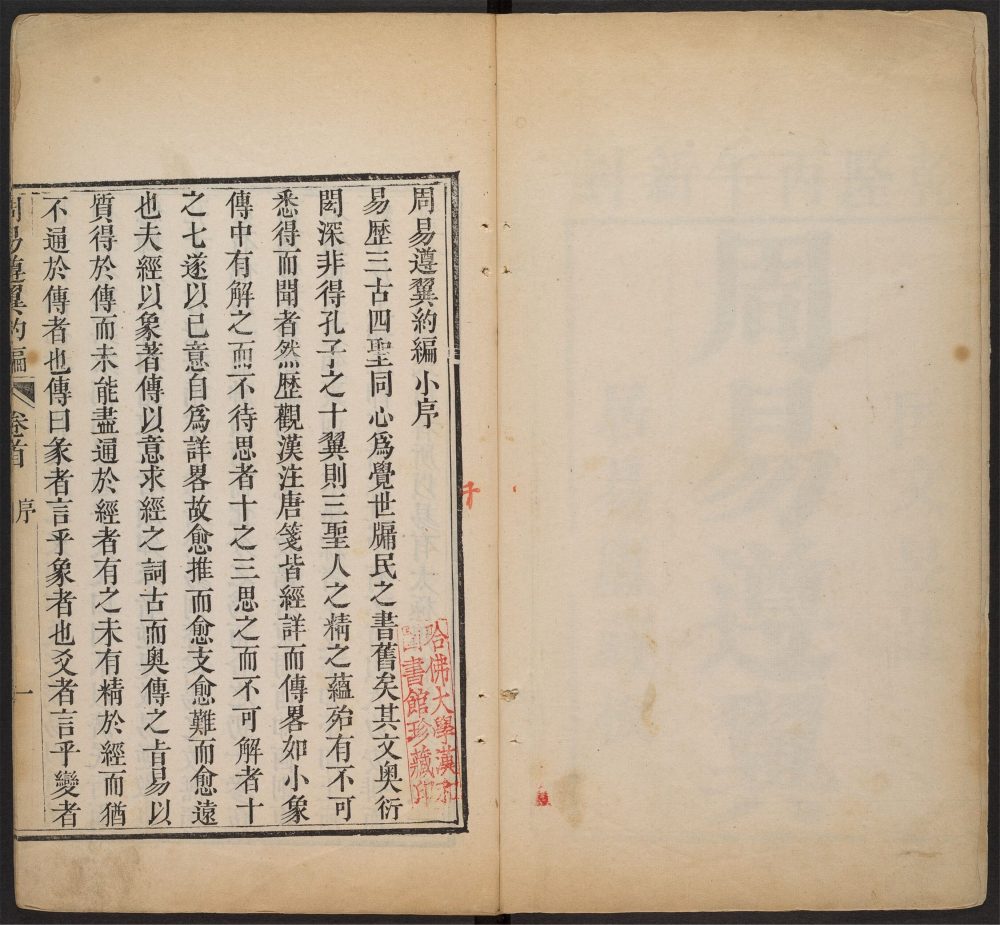 周易遵翼約編小序
易歴三古四聖同心爲覺世牖民之書舊矣其文奥衍
閎深非得孔子之十翼則三聖人之精之蘊殆有不可
悉得而聞者然歴觀漢注唐箋皆經詳而傳畧如小象
傳中有解之而不待思者十之三思之而不可解者十
之七遂以已意自爲詳畧故愈推而愈支愈難而愈遠
也夫經以象著傳以意求經之詞古而奥傳之旨易以
質得於傳而未能盡通於經者有之未有精於經而猶
不通於傳者也傳曰彖者言乎象者也爻者言乎變者
周易遵翼約編 卷首 序 一
哈佛大學漢和
圖書館珍藏印